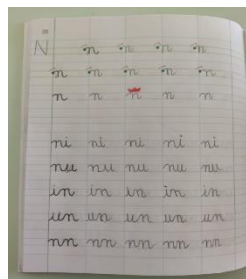 N n n n n
n n n n n
n n n n n
ni ni ni ni ni
nu nu nu nu nu
in in in in in
un un un un un
nn nn nn nn nn